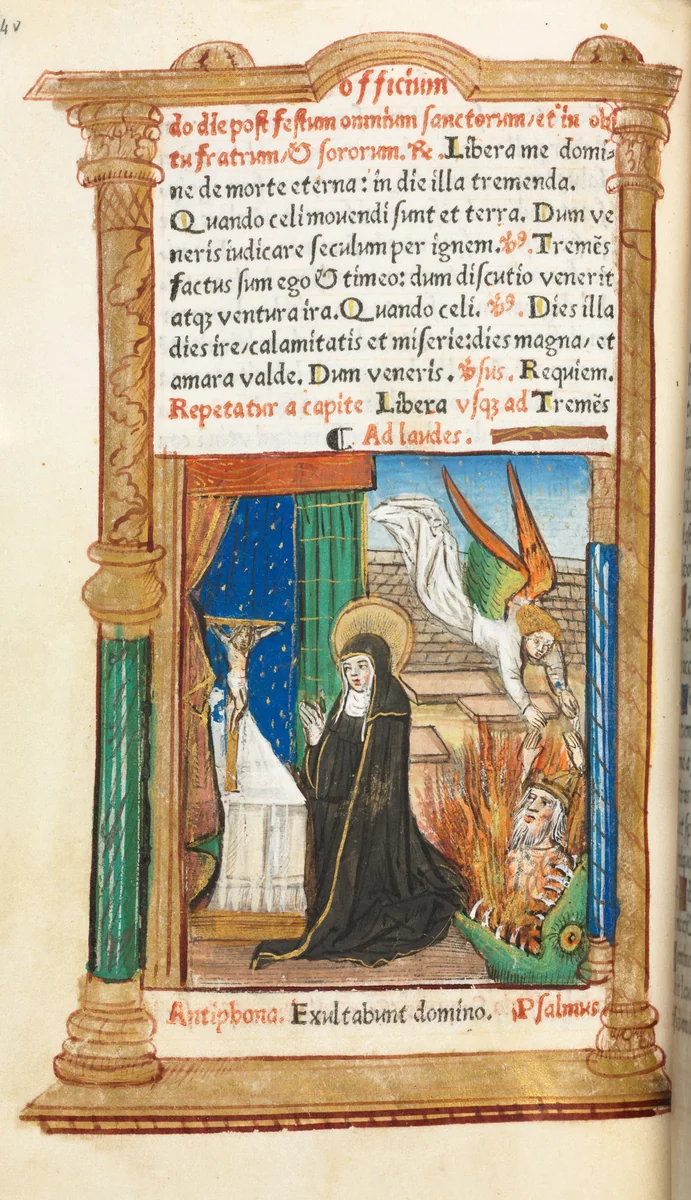 4v
officium
do die post festum omnium sanctorum/et in obi
tu fratrum/& sororum. ℟. Libera me domi⸗
ne de morte eterna: in die illa tremenda.
Quando celi mouendi sunt et terra. Dum ve
neris iudicare seculum per ignem. ℣. Tremēs
factus sum ego & timeo: dum discutio venerit
atqꝫ ventura ira. Quando celi. ℣. Dies illa
dies ire/calamitatis et miserie:dies magna/ et
amara valde. Dum veneris. ℣sus. Requiem.
Repetatur a capite Libera vsqꝫ ad Tremēs
¶ Ad laudes.
Antiphona. Exultabunt domino. Psalmus